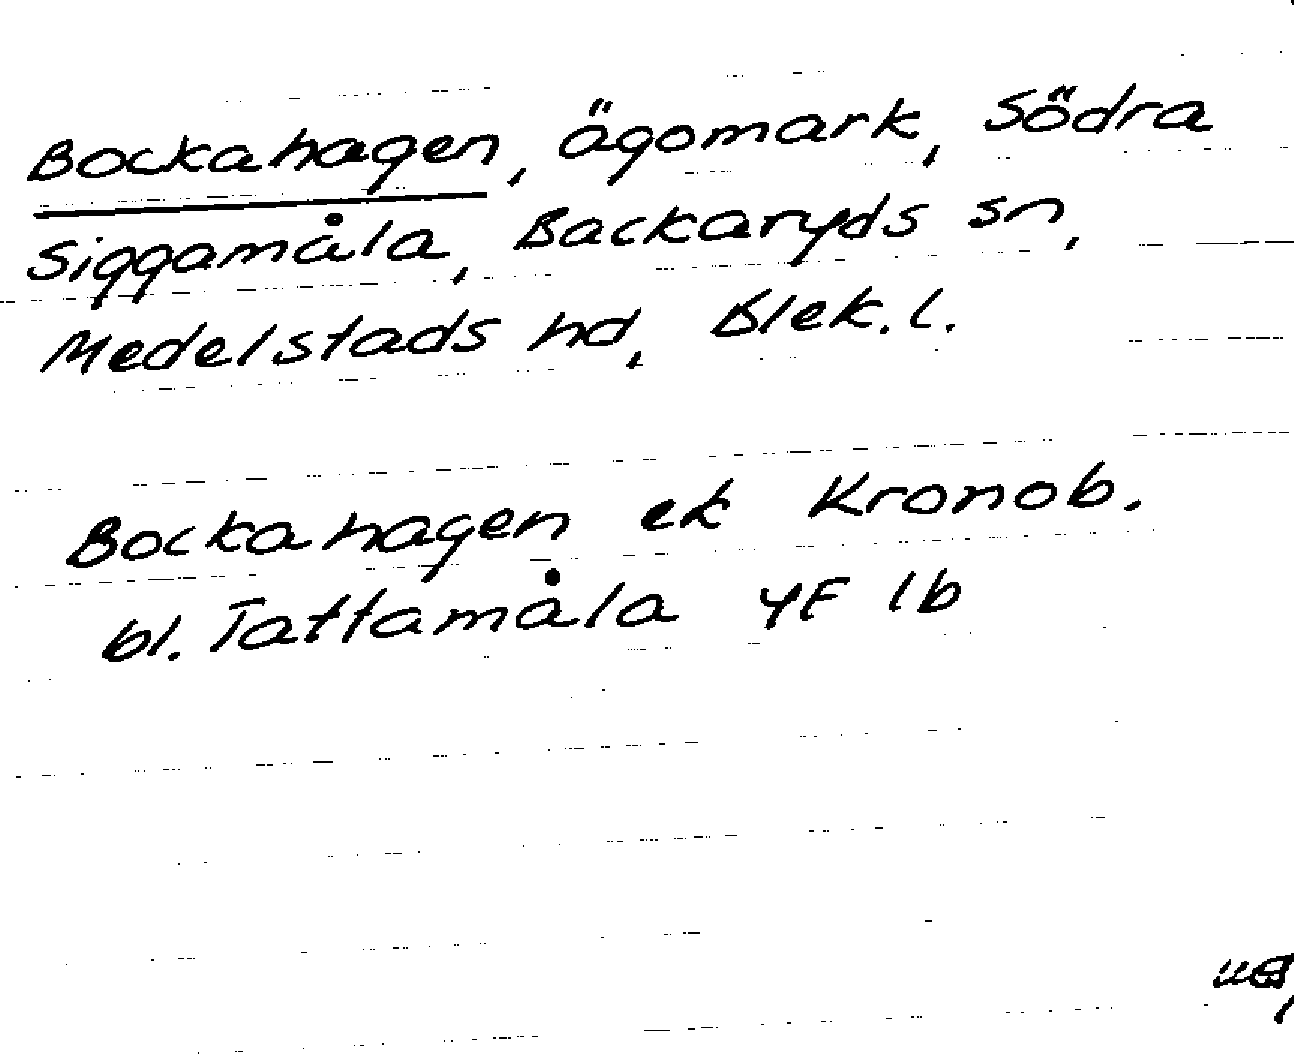 Bockahagen, ägomark, Södra
Siggamåla, Backaryds sn,
Medelstads hd, Blek. l.
Bockahagen ek Kronob.
bl. Tattamåla YF 1b